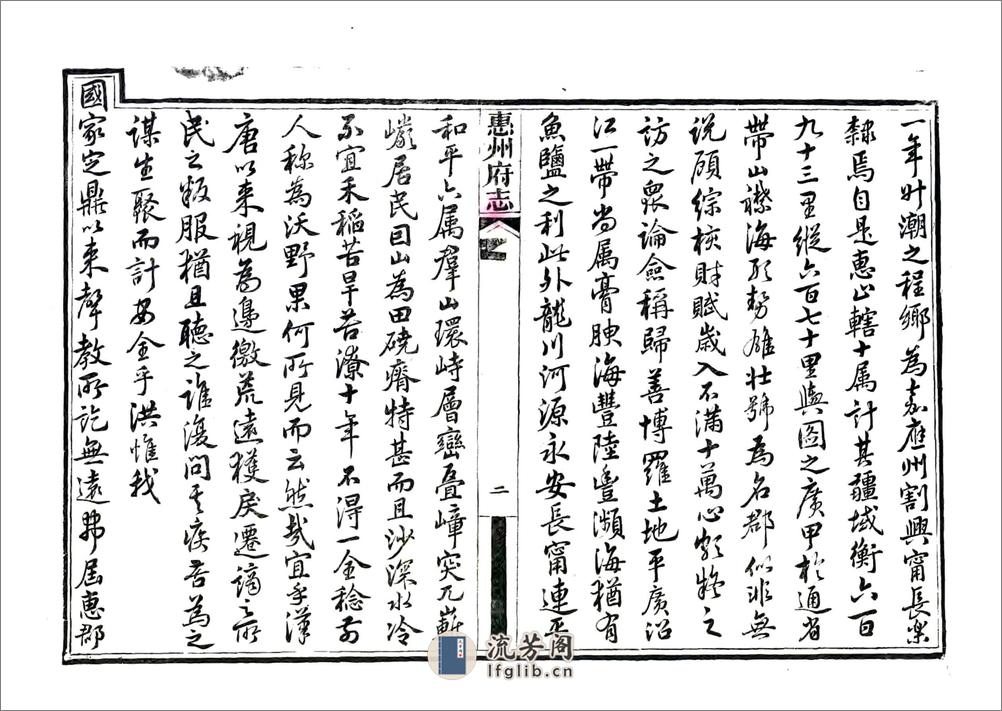 一年升潮之程鄉為嘉應州割興甯長樂
隸焉自是惠止轄十属計其疆域衡六百
九十三里縱六百七十里輿圖之廣甲於通省
帶山襟海形勢雄壯號為名郡似非無
說顧綜核財賦歲入不滿十萬心竊疑之
訪之眾論僉稱歸善博羅土地平廣沿
江一帶尚属膏腴海豐陸豐瀕海猶有
魚鹽之利此外龍川河源永安長甯連平
惠州府志
二
和平六属羣山環峙層巒疊嶂突兀嶄
巉居民因山為田磽瘠特甚而且沙深水冷
不宜禾稻苦旱苦潦十年不得一金稔前
人称為沃野果何所見而云然哉宜乎漢
唐以来視為邊徼荒遠獲戾遷謫之所
民之叛服猶且聽之誰復問其疾苦為之
謀生聚而計安全乎洪惟我
國家定鼎以来聲教所訖無遠弗屆惠郡
流芳阁
lfglib.cn